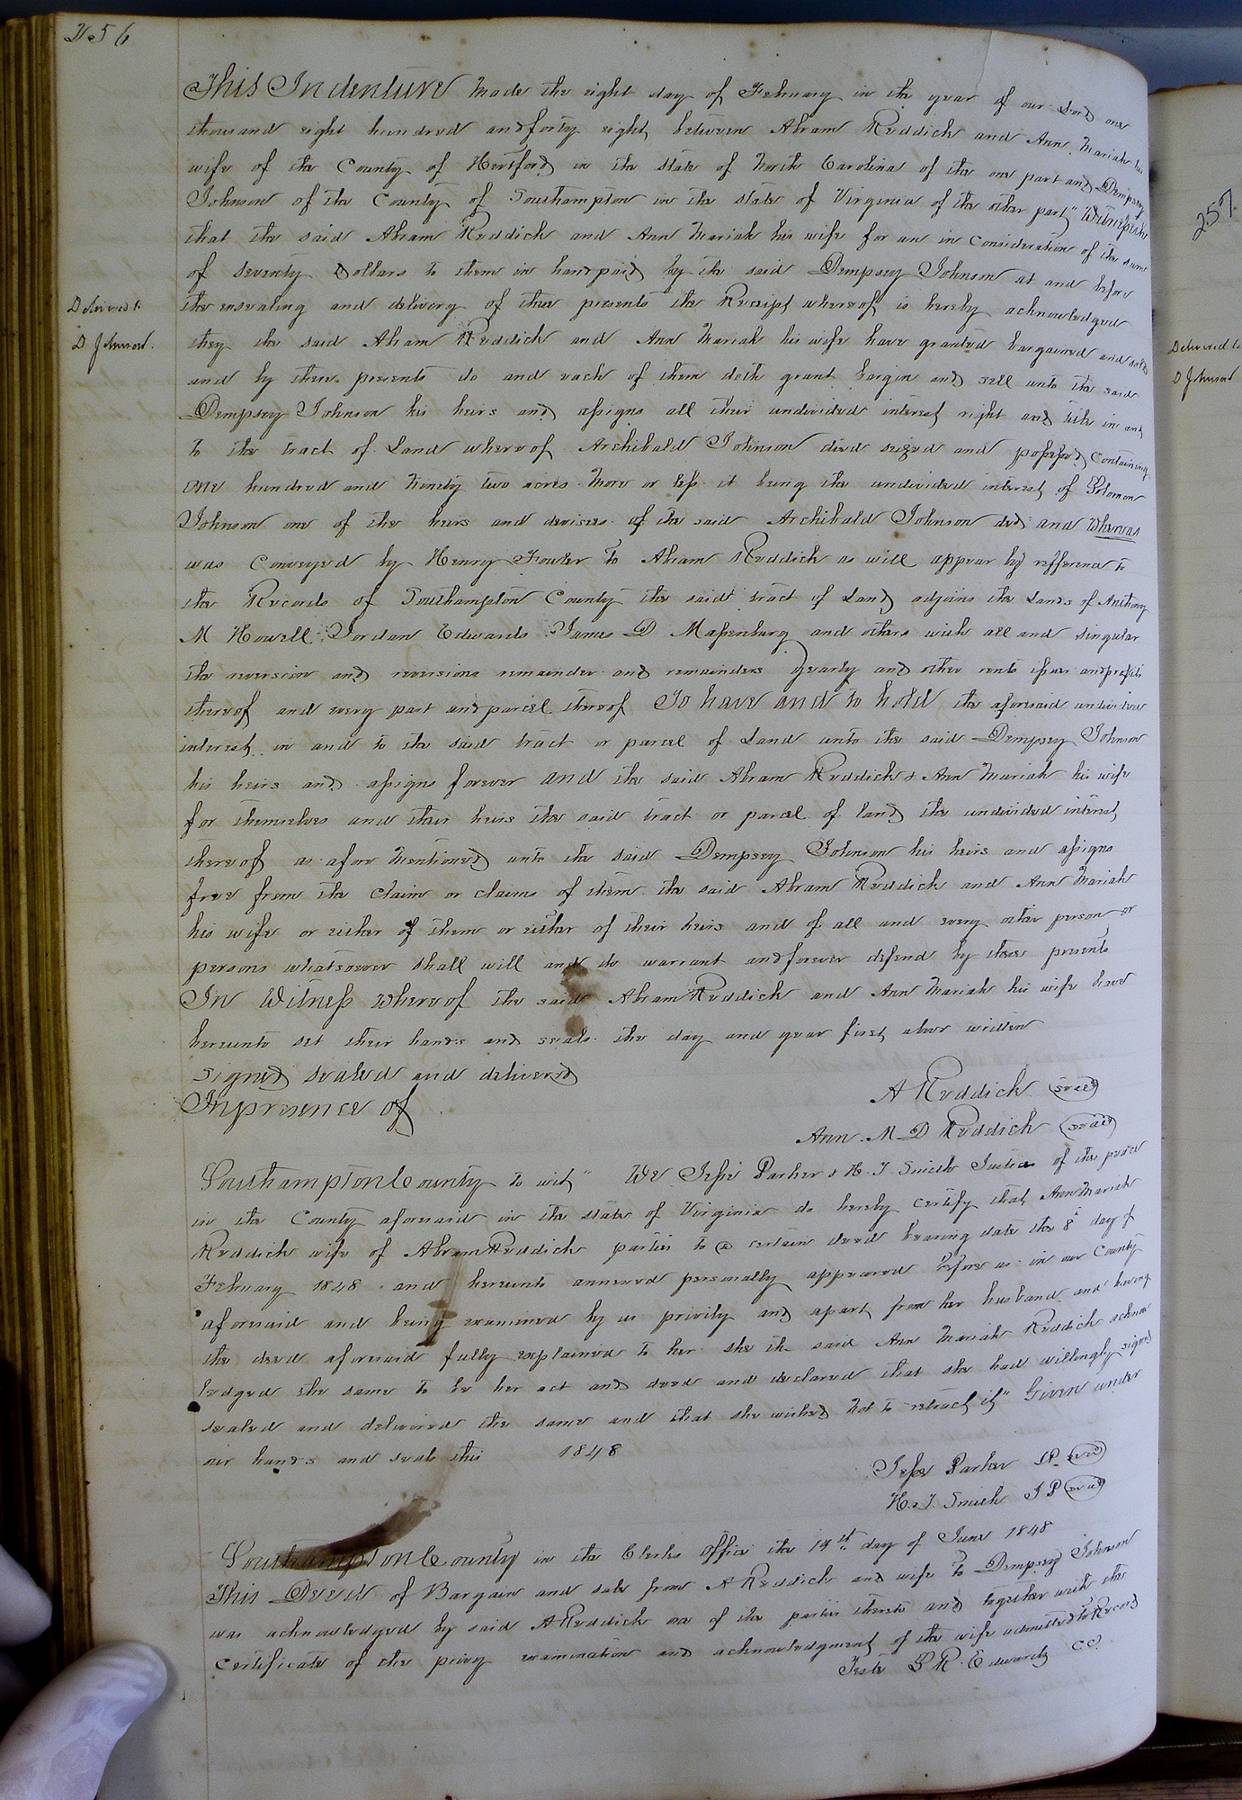 256
This Indenture made the eight day of February in the year of our Lord one
thousand eight hundred and forty eight between Abram Reddick and Ann Mariah his
wife of the County of Hertford in the state of North Carolina of the one part and Dempsey
Johnson of the County of Southampton in the state of Virginia of the other part," Witnesseth
that the said Abram Reddick and Ann Mariah his wife for an in Consideration of the sum
of seventy Dollars to them in hand paid by the said Dempsey Johnson at and before
the ensealing and delivery of these presents the Receipt whereof is hereby acknowledged
they the said Abram Reddick and Ann Mariah his wife have granted bargained and sold
and by these presents do and each of them doth grant bargin and sell unto the said
Dempsey Johnson his heirs and assigns all their undivided interest right and title in and
to the tract of Land whereof Archibald Johnson died seized and possessed, Containing
one hundred and Ninety two acres more or less it being the undivided interest of Solomon
Johnson one of the heirs and devisees of the said Archibald Johnson dcd and Whereas
was Conveyed by Henry Fowler to Abram Reddick as will appear by refference to
the Records of Southampton County the said tract of Land adjoins the Lands of Anthony
M Howell Jordan Edwards James D Massenburg and others with all and singular
the reversion and reversions remainder and remainders yearly and other rents issues and profits
thereof and every part and parcel thereof To have and to hold the aforesaid undivided
interest in and to the said tract or parcel of Land unto the said Dempsey Johnson
his heirs and assigns forever and the said Abram Reddick & Ann Mariah his wife
for themselves and their heirs the said tract or parcel of land the undivided interest
thereof as afore mentioned unto the said Dempsey Johnson his heirs and assigns
free from the claim or claims of them the said Abram Reddick and Ann Mariah
his wife or either of them or either of their heirs and of all and every other person or
persons whatsoever shall will and do warrant and forever defend by these presents
In Witness Whereof the said Abram Reddick and Ann Mariah his wife have
hereunto set their hands and seals the day and year first above written
Signed sealed and delivered
In presence of
A Reddick (seal)
Ann M D Reddick (seal)
Southampton County to wit" We Jesse Parker & H. T. Smith Justices of the peace
in the County aforesaid in the state of Virginia do hereby certify that Ann Mariah
Reddick wife of Abram Reddick parties to a certain deed bearing date the 8th day of
February 1848 and hereunto annexed personally appeared before us in our County
aforesaid and being examined by us privily and apart from her husband and having
the deed aforesaid fully explained to her she the said Ann Mariah Reddick acknow
ledged the same to be her act and deed and declared that she had willingly signed
sealed and delivered the same and that she wished not to retract it" Given under
our hands and seals this 1848
Jesse Parker JP (seal)
H. T. Smith J P (seal)
Southampton County in the Clerks Office the 14th day of June 1848
This Deed of Bargain and sale from A Reddick and wife to Dempsey Johnson
was acknowledged by said A Reddick one of the parties thereto and together with the
Certificate of the privy examination and acknowledgment of the wife admitted to Record
Teste L R Edwards CC
Delivered to
D Johnson.
257
Delivered to
D Johnson